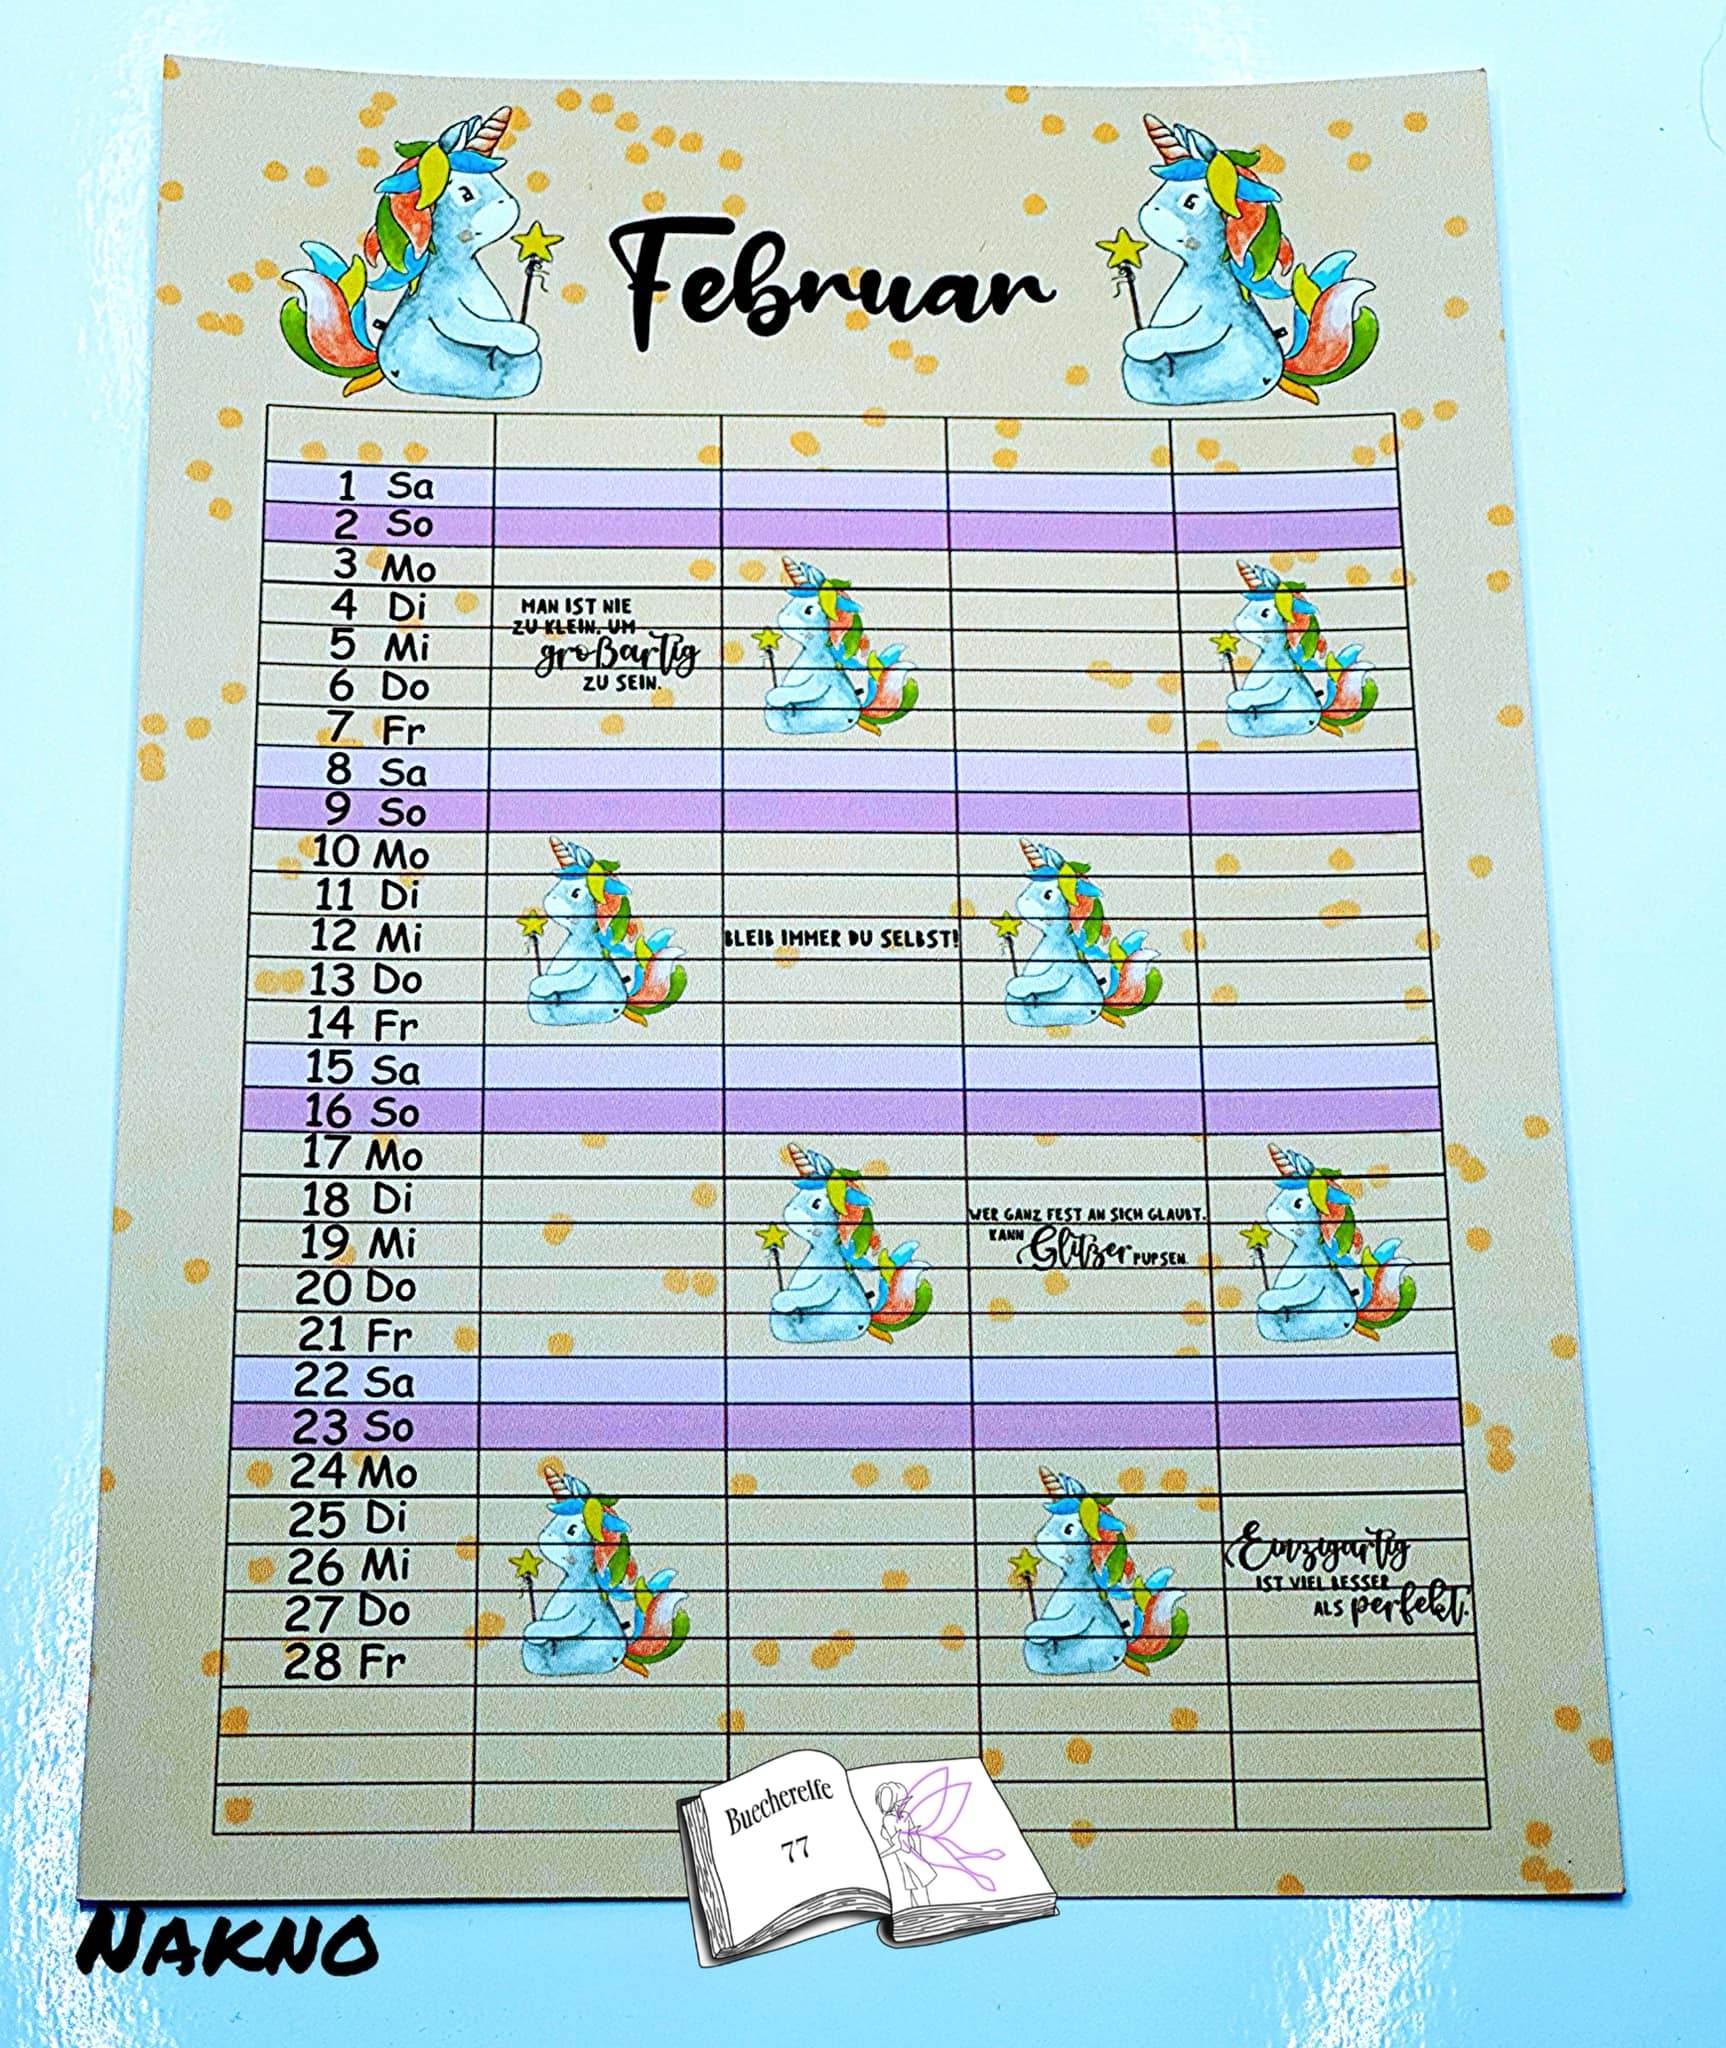 Februar
1 Sa
2 So
3 Mo
4 Di
MAN IST NIE
ZU KLEIN, UM
5 Mi
großartig
6 Do
ZU SEIN.
7 Fr
8 Sa
9 So
10 Mo
11 Di
12 Mi
BLEIB IMMER DU SELBST!
13 Do
14 Fr
15 Sa
16 So
17 Mo
18 Di
WER GANZ FEST AN SICH GLAUBT,
19 Mi
KANN Glitzer PUPSEN.
20 Do
21 Fr
22 Sa
23 So
24 Mo
25 Di
26 Mi
Einzigartig
IST VIEL BESSER
27 Do
ALS perfekt.
28 Fr
Buecherelfe
77
NAKNO